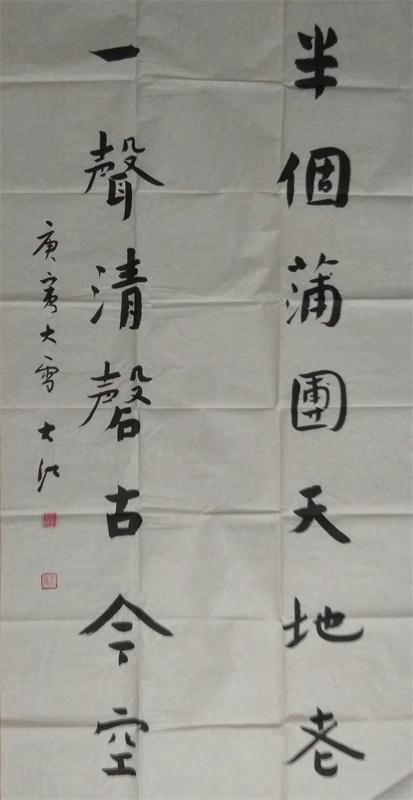 半個蒲團天地老
一聲清磬古今空
庚寅大雪 大江